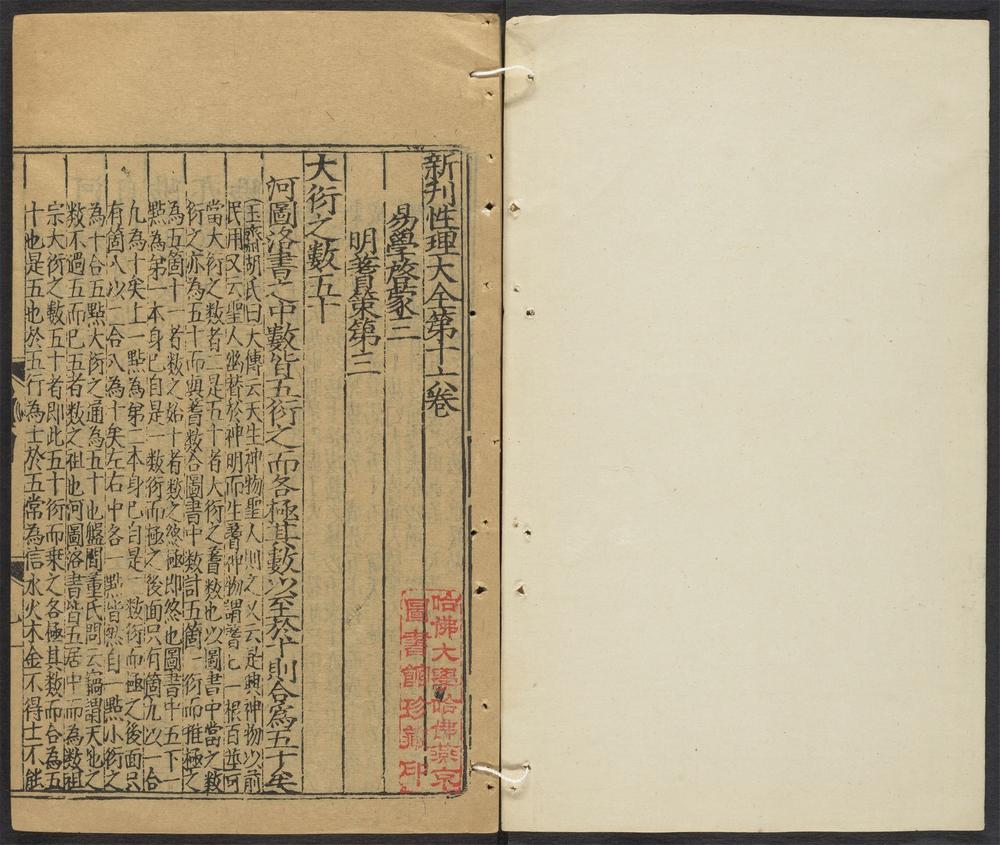 新刊性理大全第十六卷
易學啓蒙三
明蓍策第三
大衍之數五十
河圖洛書之中數皆五衍之而各極其數以至於十則合爲五十矣
玉齋胡氏曰大傳云天生神物聖人則之又云是興神物以前
民用又云聖人幽贊於神明而生蓍神物謂蓍也一根百莖可
當大衍之數者二是五十者大衍之蓍數也以圖書中當之數
衍之亦為五十而與蓍數合圖書中數計五箇一衍而推極之
為五箇十一者數之始十者數之終極即終也圖書中五下一
點為第一本身已自是一數衍而極之後面只有箇九以一合
九為十矣上一點為第二本身已自是一數衍而極之後面只
有箇八以二合八為十矣左右中各一點皆然自一點小衍之
為十合五點大衍之通為五十也盤澗董氏問云竊謂天地之
數不過五而已五者數之祖也河圖洛書皆五居中而為數祖
宗大衍之數五十者即此五十衍而乘之各極其數而合為五
十也是五也於五行為士於五常為信水火木金不得士不能
哈佛大學哈佛燕京
圖書館珍藏印